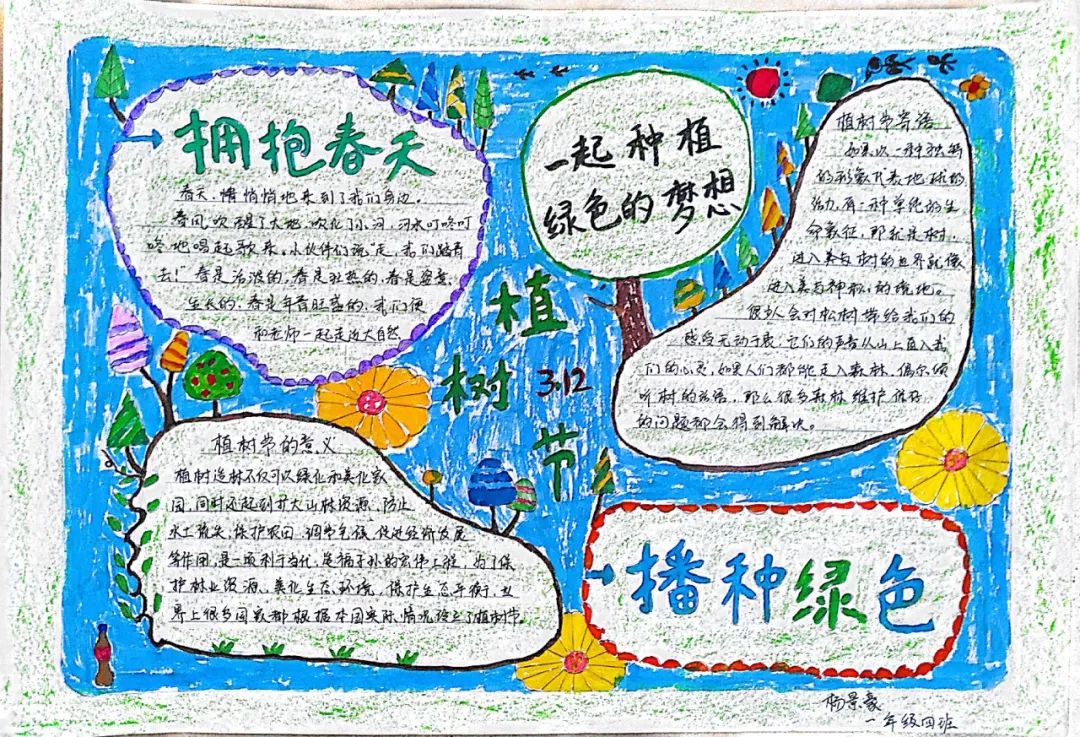 拥抱春天
春天,悄悄悄地来到了我们身边。
春风吹醒了大地,吹化了小河,河水叮咚叮
咚地唱起歌来。小伙伴们说“走,我们踏青
去!”春是活泼的,春是狂热的,春是恣意
生长的,春是年青旺盛的,我们便
和老师一起走近大自然
一起种植
绿色的梦想
植树节寄语
如果以一种独特
的形象代表地球的
活力,用一种单纯的生
命象征,那就是树,
进入美与树的世界就像
进入美与神秘的境地。
很少人会对松树带给我们的
感受无动于衷,它们的声音从山上直入我
们的心灵,如果人们都能走入森林,偶尔倾
听树的的话语,那么很多森林维护
的问题都会得到解决。
植树节
3.12
植树节的意义
植树造林不仅可以绿化和美化家
园,同时还起到扩大山林资源、防止
水土流失、保护农田、调节气候、促进经济发展
等作用,是一项利于当代、造福子孙的宏伟工程,为了保
护林业资源、美化生态环境、保护生态平衡,世
界上很多国家都根据本国实际情况设立了植树节。
播种绿色
杨景豪
一年级四班